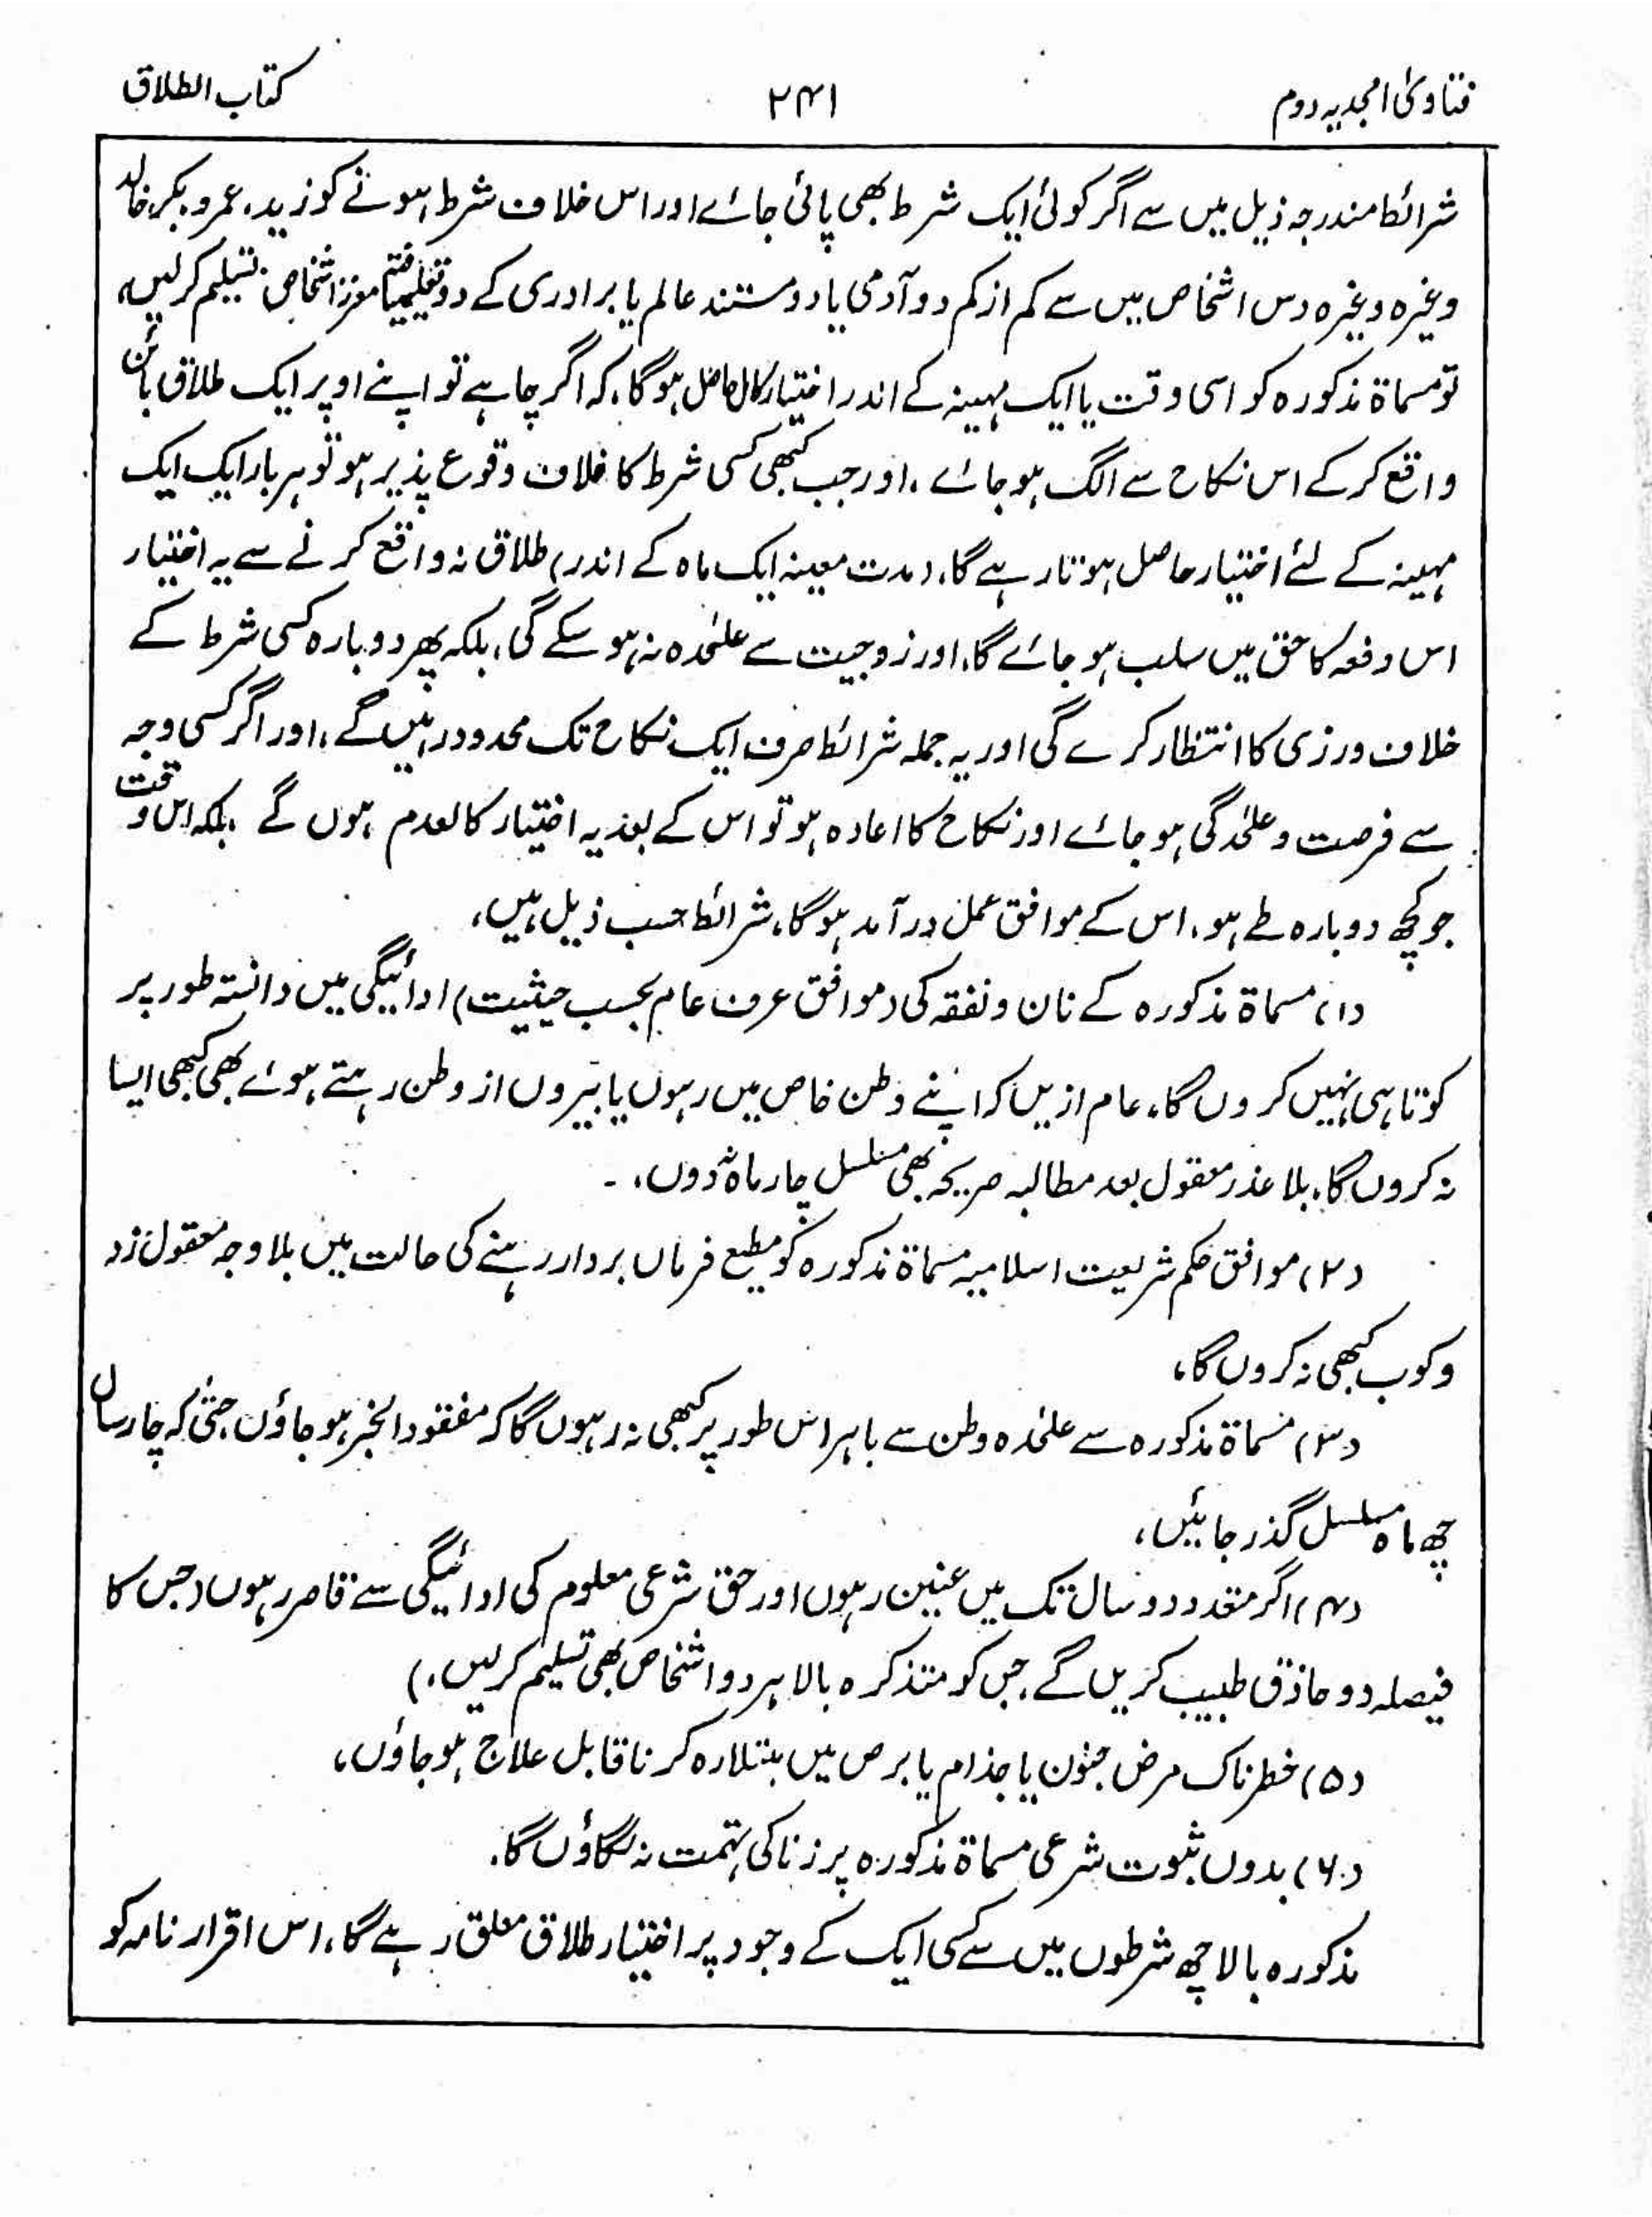 فتاویٰ امجدیہ دوم
۲۴۱
کتاب الطلاق
شرائط مندرجہ ذیل میں سے اگر کوئی ایک شرط بھی پائی جائے اور اس خلاف شرط ہونے کو زید، عمرو بکر، خالد
وغیرہ وغیرہ دس اشخاص میں سے کم از کم دو آدمی یا دو مستند عالم یا برادری کے دو تعلیم یافتہ معزز اشخاص تسلیم کرلیں،
تو مسماۃ مذکورہ کو اسی وقت یا ایک مہینہ کے اندر اختیار کامل حاصل ہوگا، کہ اگر چاہے تو اپنے اوپر ایک طلاق بائن
واقع کرکے اس نکاح سے الگ ہو جائے، اور جب کبھی کسی شرط کا خلاف وقوع پذیر ہو تو ہر بار ایک ایک
مہینہ کے لئے اختیار حاصل ہوتا رہے گا، (مدت معینہ ایک ماہ کے اندر) طلاق نہ واقع کرنے سے یہ اختیار
اس دفعہ کا حق میں سلب ہو جائے گا، اور زوجیت سے علٰحدہ نہ ہو سکے گی، بلکہ پھر دوبارہ کسی شرط کے
خلاف ورزی کا انتظار کرے گی اور یہ جملہ شرائط صرف ایک نکاح تک محدود رہیں گے، اور اگر کسی وجہ
سے فرصت و علٰحدگی ہو جائے اور نکاح کا اعادہ ہو تو اس کے بعد یہ اختیار کالعدم ہوں گے بلکہ اس وقت
جو کچھ دوبارہ طے ہو، اس کے موافق عمل درآمد ہوگا، شرائط حسب ذیل ہیں،
(۱) مسماۃ مذکورہ کے نان و نفقہ کی (موافق عرف عام بحسب حیثیت) ادائیگی میں دانستہ طور پر
کوتاہی نہیں کروں گا، عام ازیں کہ اپنے وطن خاص میں رہوں یا بیروں از وطن رہتے ہوئے بھی کبھی ایسا
نہ کروں گا، بلا عذر معقول بعد مطالبہ صریحہ بھی مسلسل چار ماہ نہ دوں، ۔
(۲) موافق حکم شریعت اسلامیہ مسماۃ مذکورہ کو مطیع فرماں بردار رہنے کی حالت میں بلا وجہ معقول زد
وکوب کبھی نہ کروں گا،
(۳) مسماۃ مذکورہ سے علٰحدہ وطن سے باہر اس طور پر کبھی نہ رہوں گا کہ مفقود الخبر ہو جاؤں حتٰی کہ چار سال
چھ ماہ مسلسل گذر جائیں،
(۴) اگر متعدد دو سال تک میں عنین رہوں اور حق شرعی معلوم کی ادائیگی سے قاصر رہوں (جس کا
فیصلہ دو حاذق طبیب کریں گے، جس کو متذکرہ بالا ہر دو اشخاص بھی تسلیم کرلیں،)
(۵) خطرناک مرض جنون یا جذام یا برص میں مبتلا رہ کر ناقابل علاج ہو جاؤں،
(۶) بدوں ثبوت شرعی مسماۃ مذکورہ پر زنا کی تہمت نہ لگاؤں گا.
مذکورہ بالا چھ شرطوں میں سے کسی ایک کے وجود پر اختیار طلاق معلق رہے گا، اس اقرار نامہ کو